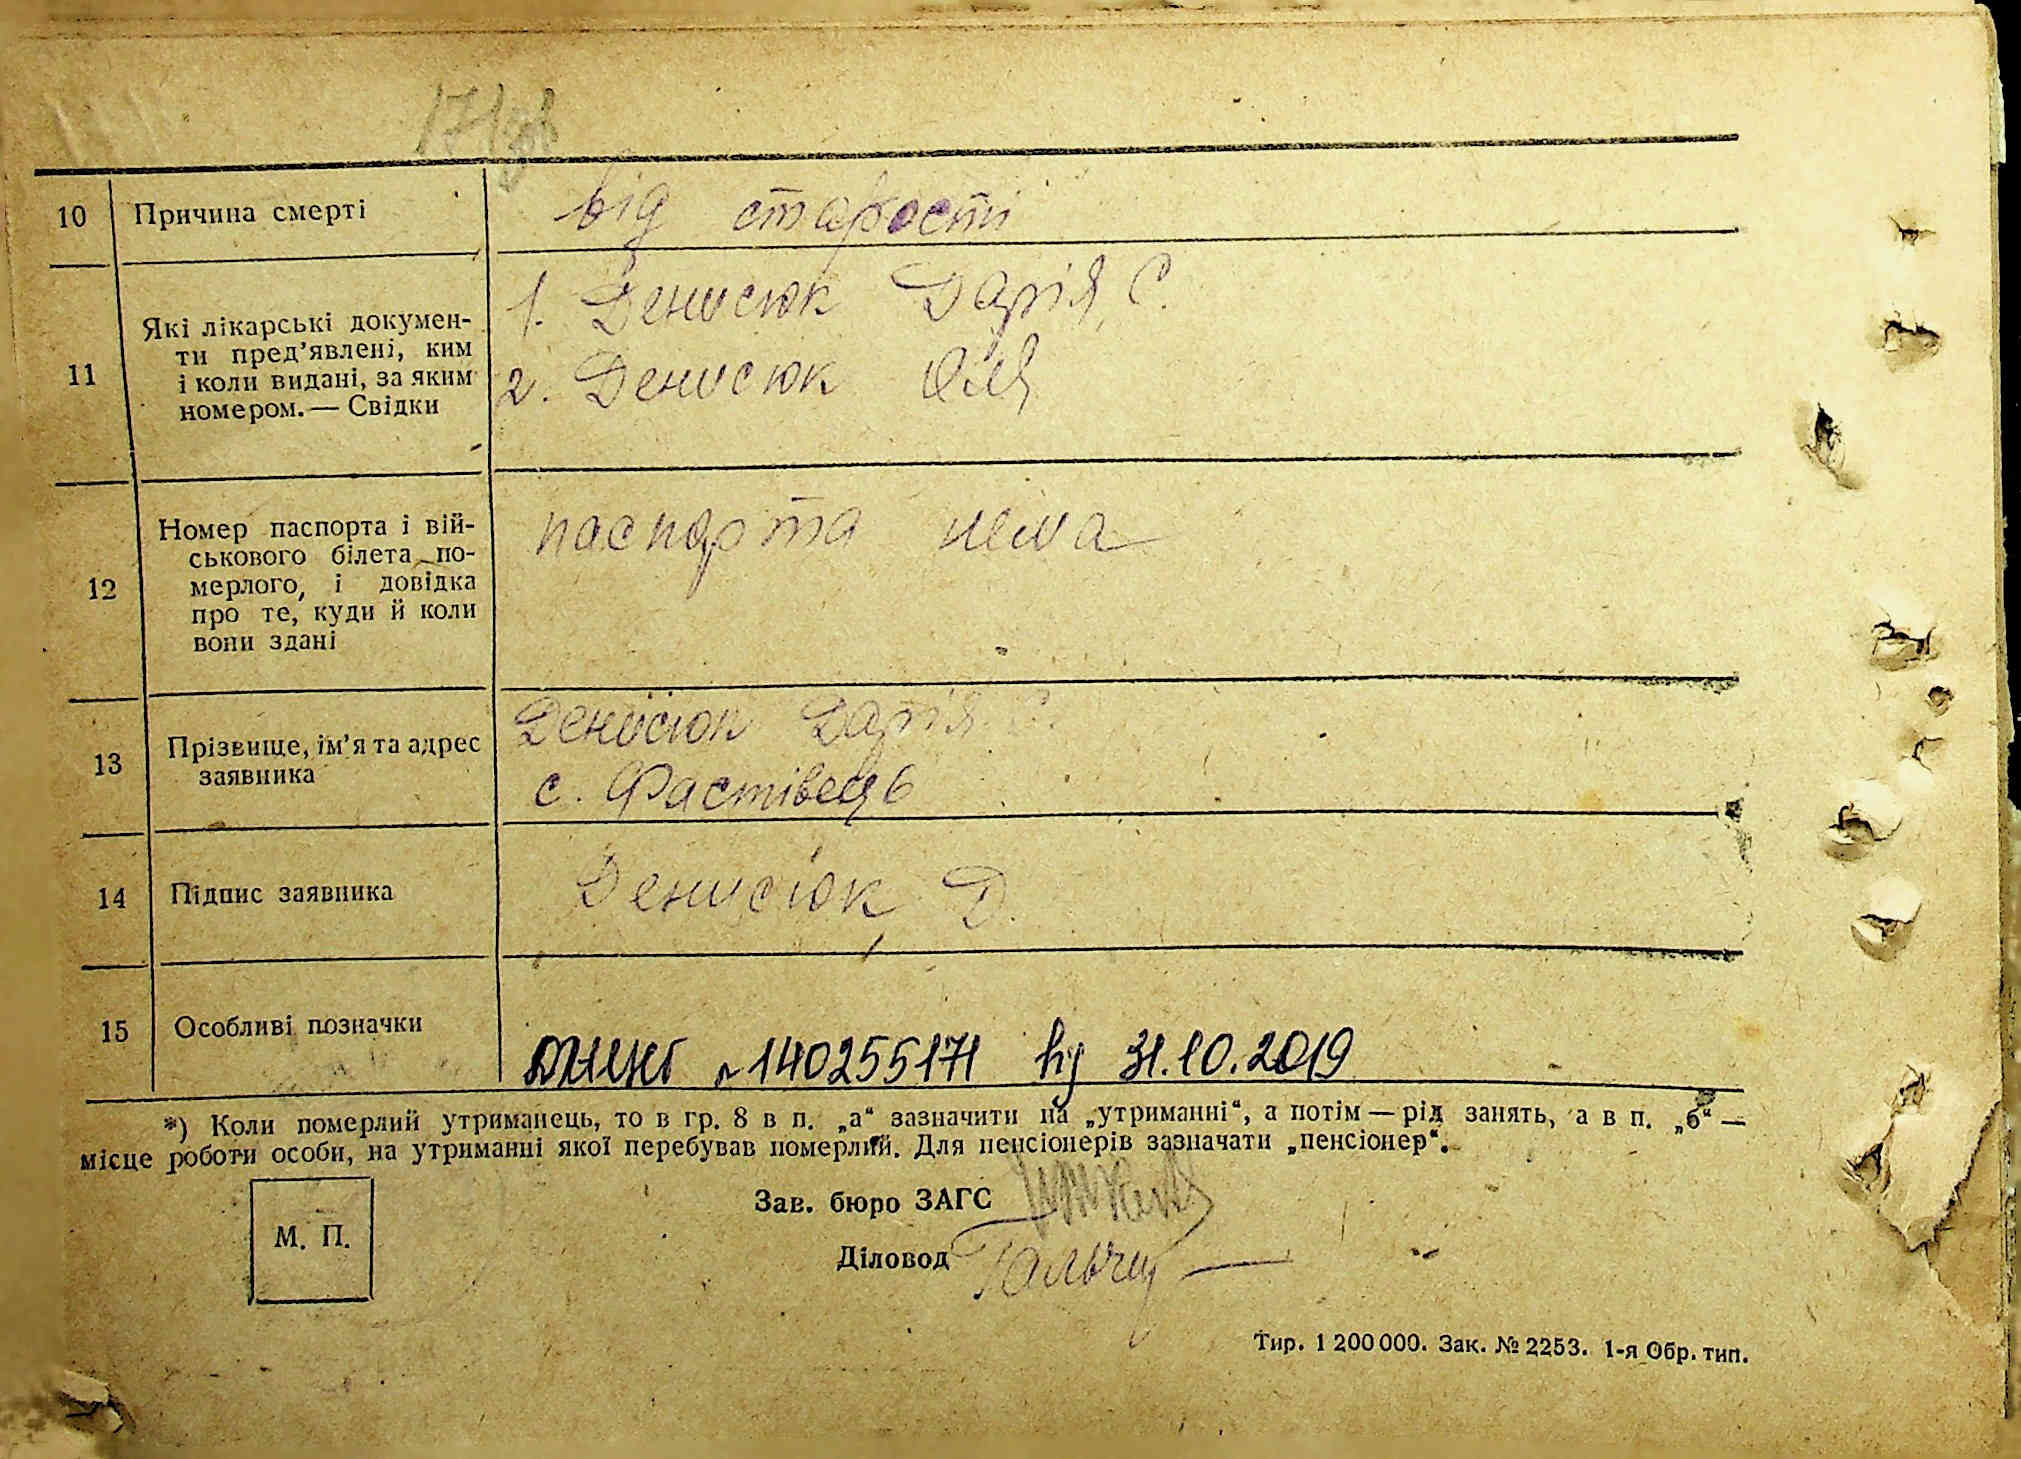 10 Причина смерті від старости
11 Які лікарські докумен-
ти пред’явлені, ким
і коли видані, за яким
номером.— Свідки
1. Денисюк Дарія С.
2. Денисюк
12 Номер паспорта і вій-
ськового білета по-
мерлого, і довідка
про те, куди й коли
вони здані
паспорта нема
13 Прізвище, ім’я та адрес
заявника
Денисюк Дарія С.
с. Фастівець
14 Підпис заявника Денисюк Д.
15 Особливі позначки
140255171 31.10.2019
*) Коли померлий утриманець, то в гр. 8 в п. „а“ зазначити на „утриманні“, а потім — рід занять, а в п. „б“ —
місце роботи особи, на утриманні якої перебував померлий. Для пенсіонерів зазначати „пенсіонер“.
М. П.
Зав. бюро ЗАГС
Діловод
Тир. 1 200 000. Зак. № 2253. 1-я Обр. тип.